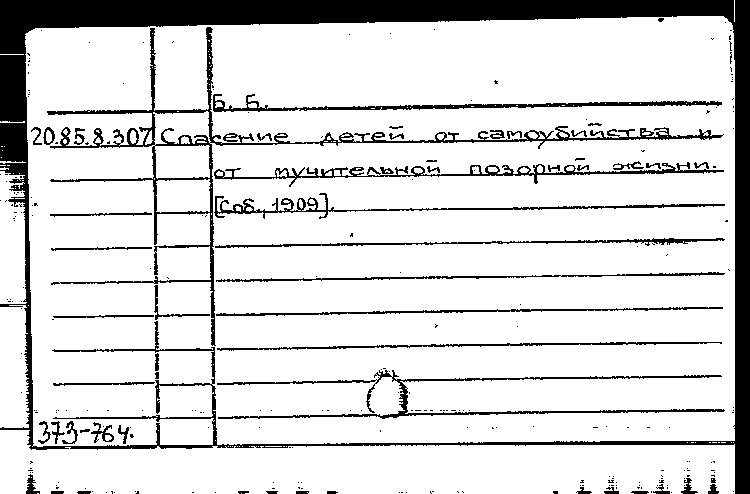 Б. Б.
20.85.8.307 Спасение детей от самоубийства и
от мучительной позорной жизни.
[Соб., 1909].
373-764.